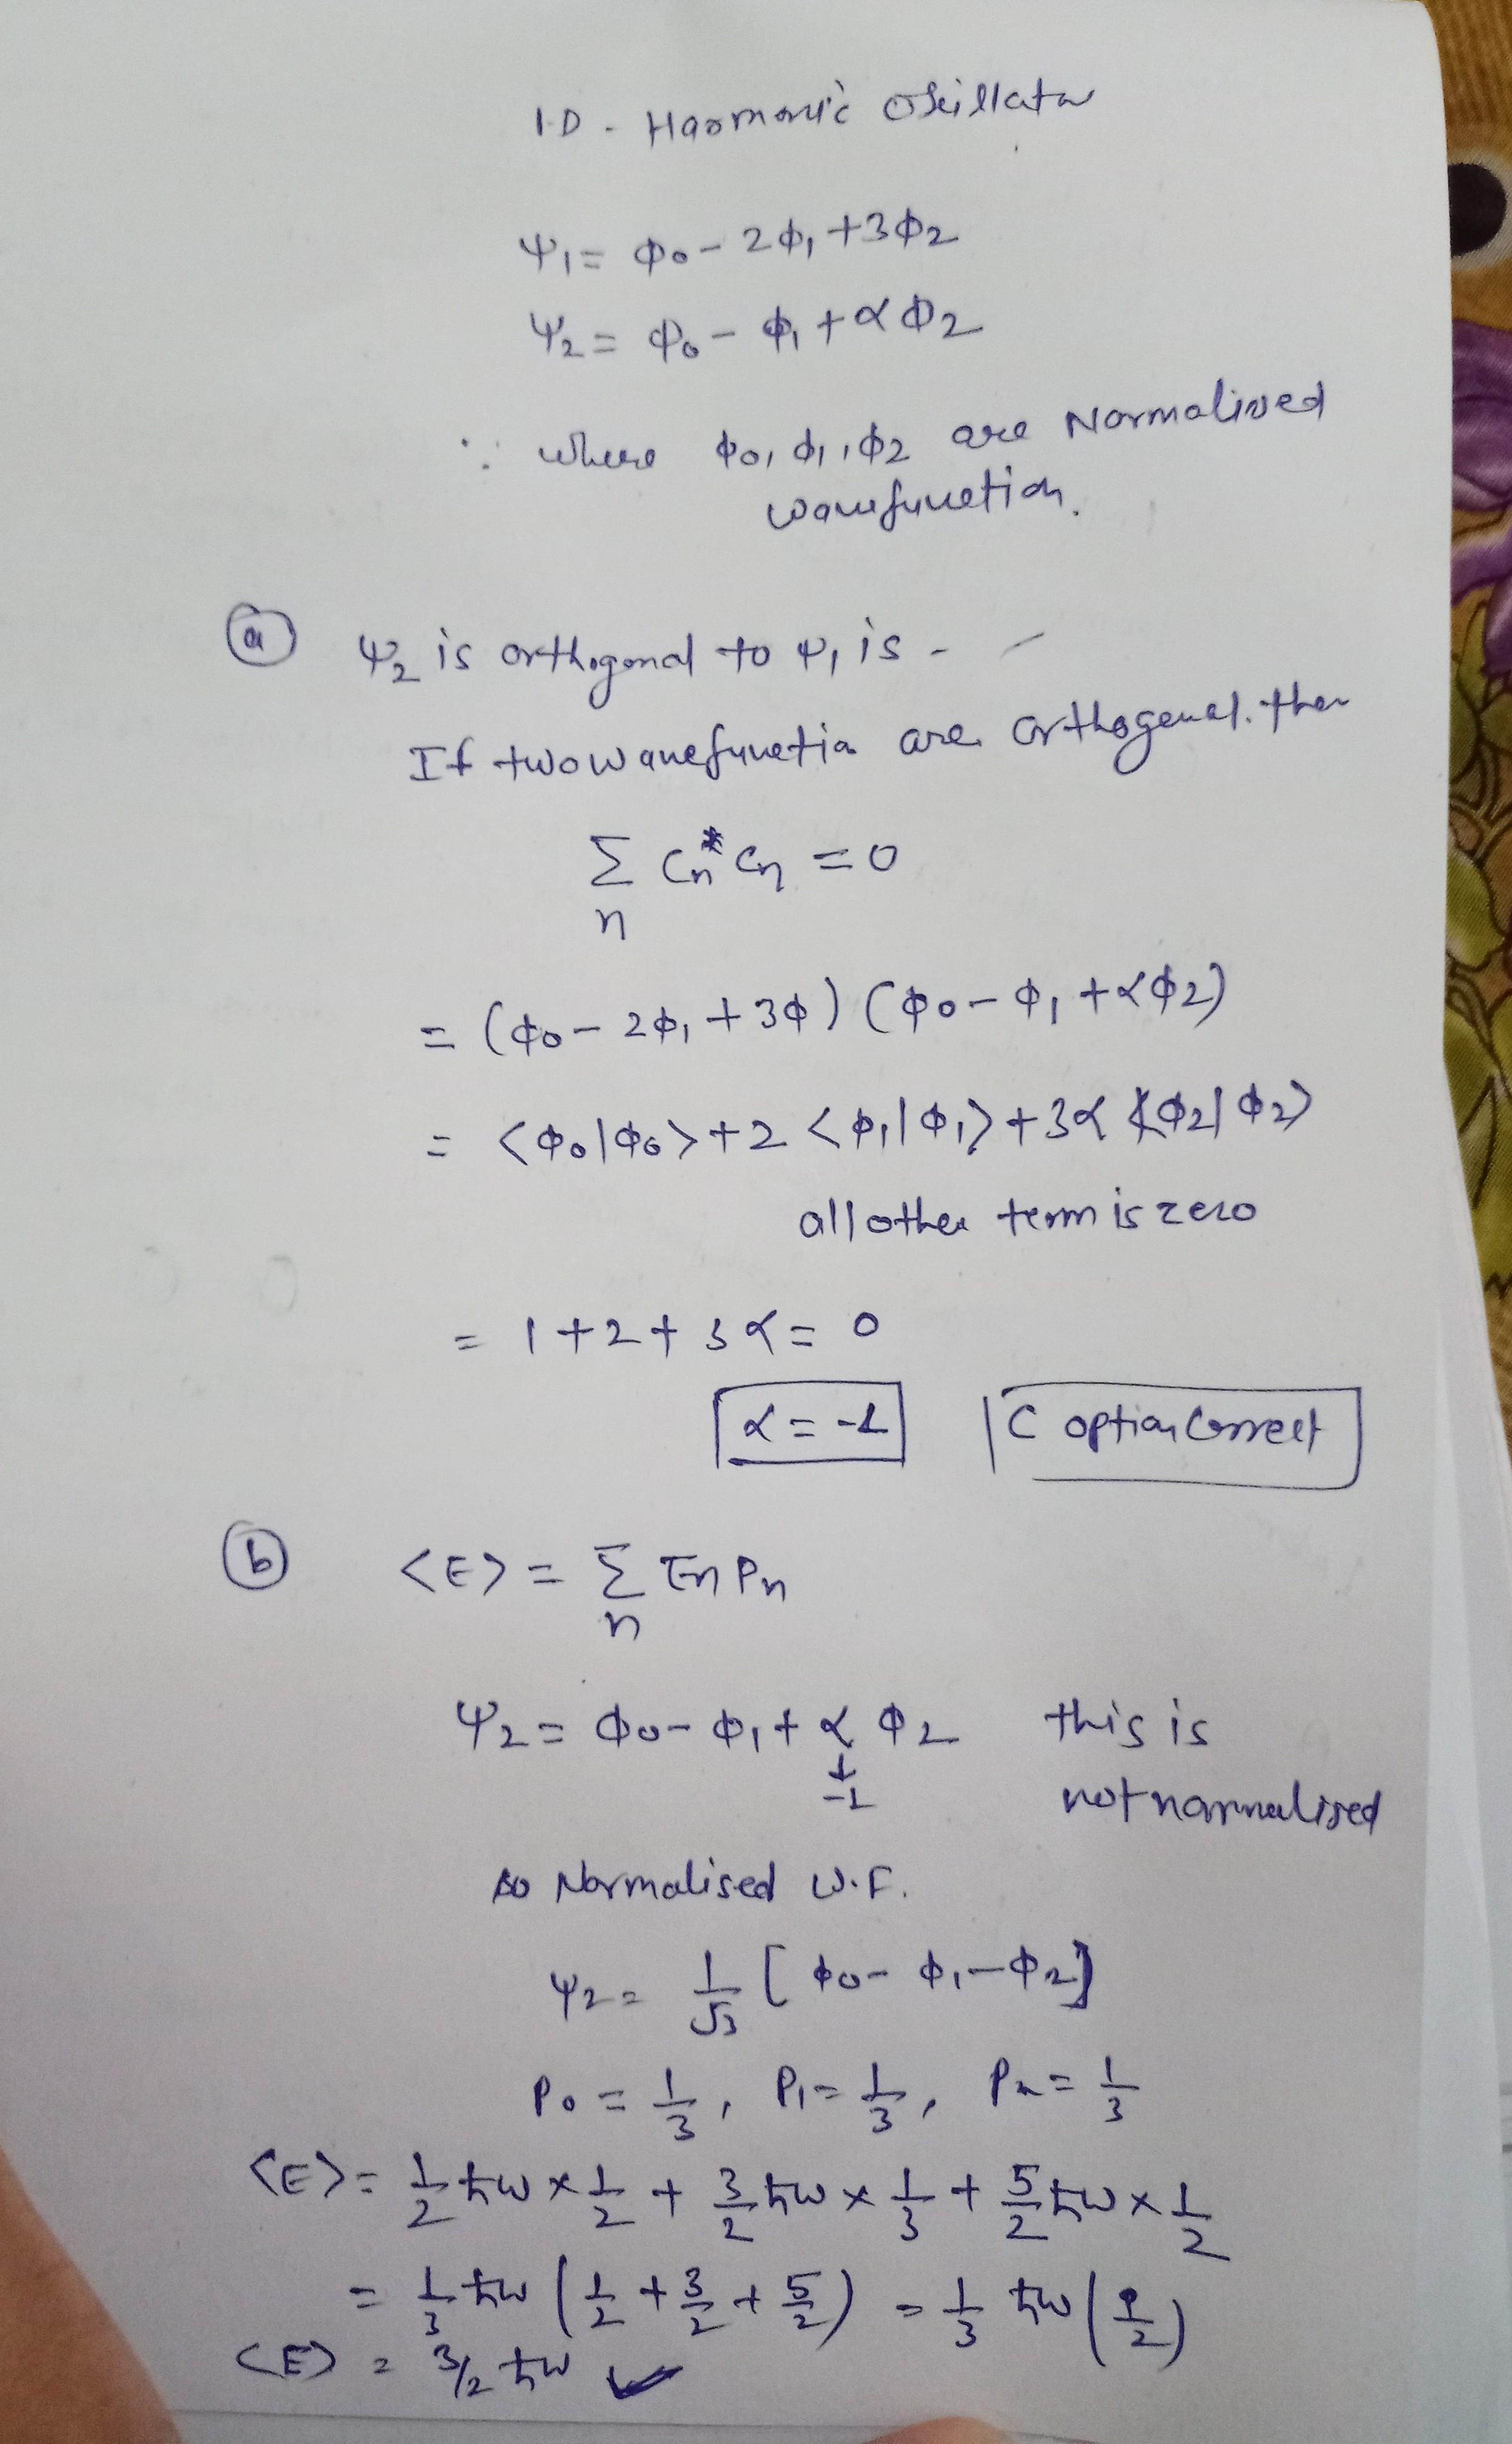 1-D - Harmonic Oscillator
Ψ₁ = ϕ₀ - 2ϕ₁ + 3ϕ₂
Ψ₂ = ϕ₀ - ϕ₁ + αϕ₂
∵ where ϕ₀, ϕ₁, ϕ₂ are Normalised
wavefunction.
(a) Ψ₂ is orthogonal to Ψ₁ is -
If two wavefunction are orthogonal. then
Σ Cn* Cn = 0
n
= (ϕ₀ - 2ϕ₁ + 3ϕ) (ϕ₀ - ϕ₁ + αϕ₂)
= <ϕ₀|ϕ₀> + 2 <ϕ₁|ϕ₁> + 3α <ϕ₂|ϕ₂>
all other term is zero
= 1 + 2 + 3α = 0
α = -1 C option Correct
(b) <E> = Σ En Pn
n
Ψ₂ = ϕ₀ - ϕ₁ + α ϕ₂ this is
↓
-1 not normalised
so Normalised W.F.
Ψ₂ = 1/√3 [ϕ₀ - ϕ₁ - ϕ₂]
P₀ = 1/3, P₁ = 1/3, P₂ = 1/3
<E> = 1/2 ħω × 1/2 + 3/2 ħω × 1/3 + 5/2 ħω × 1/2
= 1/3 ħω (1/2 + 3/2 + 5/2) = 1/3 ħω (9/2)
<E> = 3/2 ħω ✓